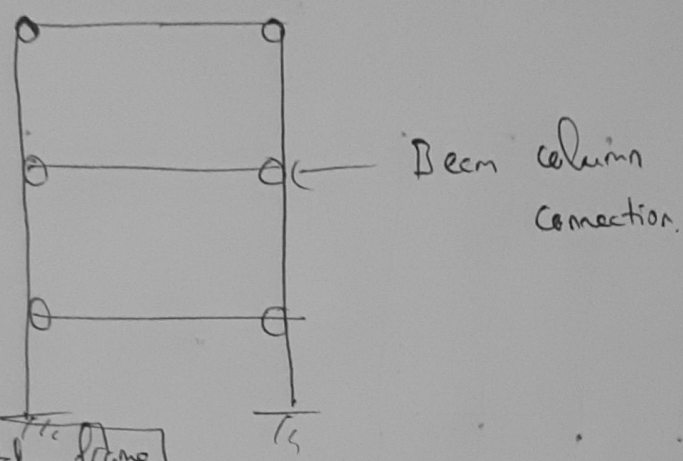 Beam column
connection.
frame